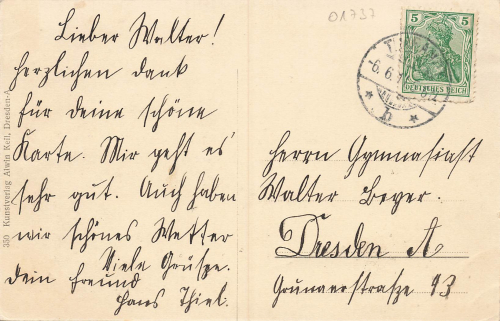 01737
Lieber Walter!
Herzlichen dank
für deine schöne
Karte. Mir geht es
sehr gut. Auch haben
wir schönes Wetter
Viele Grüsze.
dein Freund
Hans Thiel.
350 Kunstverlag Alwin Keil, Dresden-A
5 5
DEUTSCHES REICH
-6.6.
* b *
Herrn Gymnasiast
Walter Beyer.
Dresden A
Grunaerstrasze 43